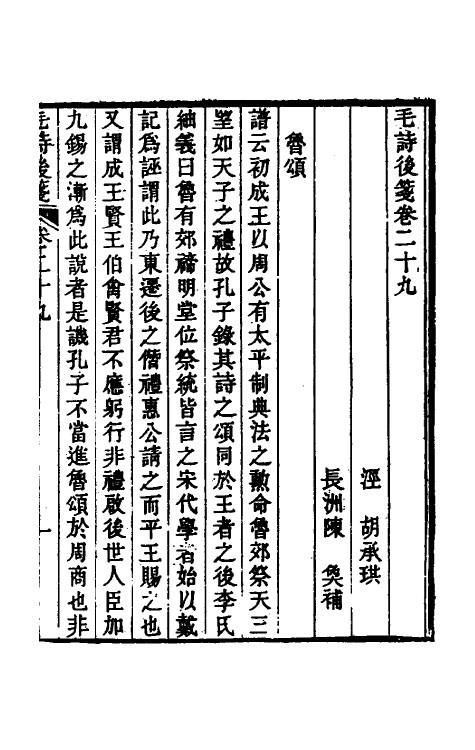 毛詩後箋卷二十九
涇　胡承珙
長洲陳　奐補
魯頌
譜云初成王以周公有太平制典法之勲命魯郊祭天三
望如天子之禮故孔子錄其詩之頌同於王者之後李氏
紬義曰魯有郊禘明堂位祭統皆言之宋代學者始以戴
記爲誣謂此乃東遷後之僭禮惠公請之而平王賜之也
又謂成王賢王伯禽賢君不應躬行非禮啟後世人臣加
九錫之漸爲此說者是譏孔子不當進魯頌於周商也非
毛詩後箋　卷二十九　一